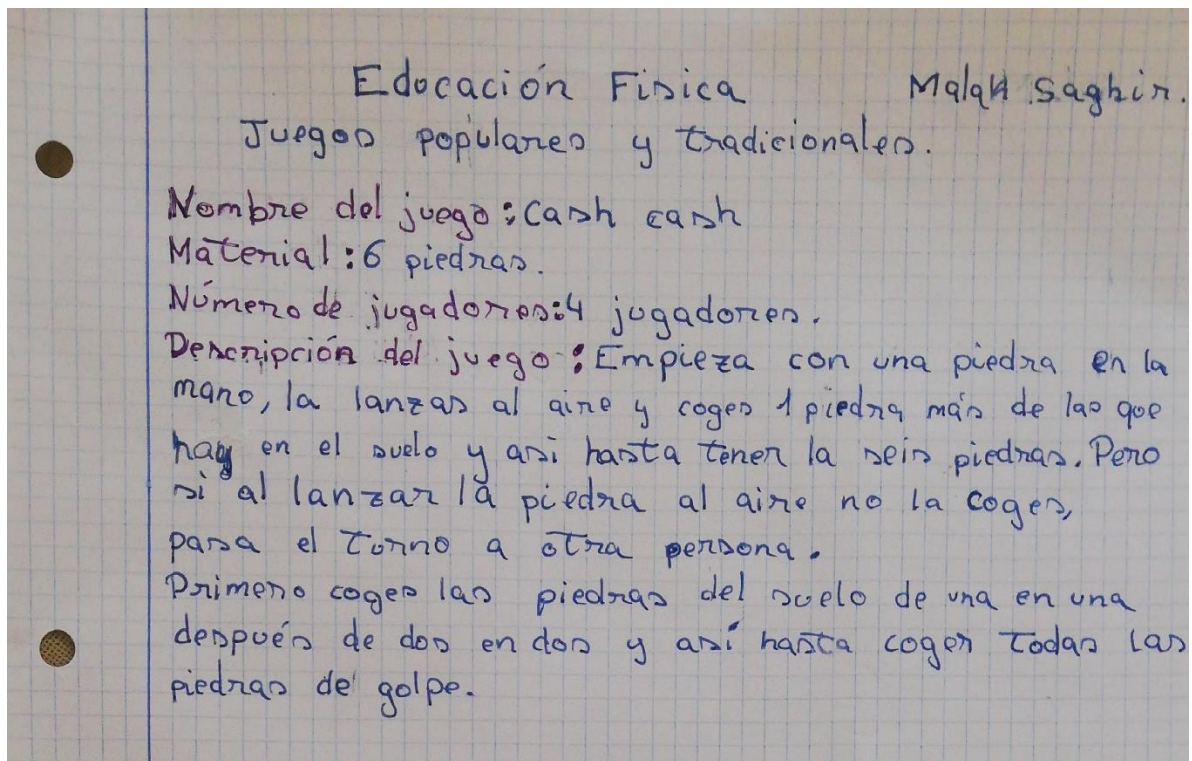 Educación Fisica Malak Saghir.
Juegos populares y tradicionales.
Nombre del juego: Cash cash
Material: 6 piedras.
Número de jugadores: 4 jugadores.
Descripción del juego: Empieza con una piedra en la
mano, la lanzas al aire y coges 1 piedra más de las que
hay en el suelo y asi hasta tener la seis piedras. Pero
si al lanzar la piedra al aire no la coges,
pasa el turno a otra persona.
Primero coges las piedras del suelo de una en una
después de dos en dos y así hasta coger todas las
piedras de golpe.